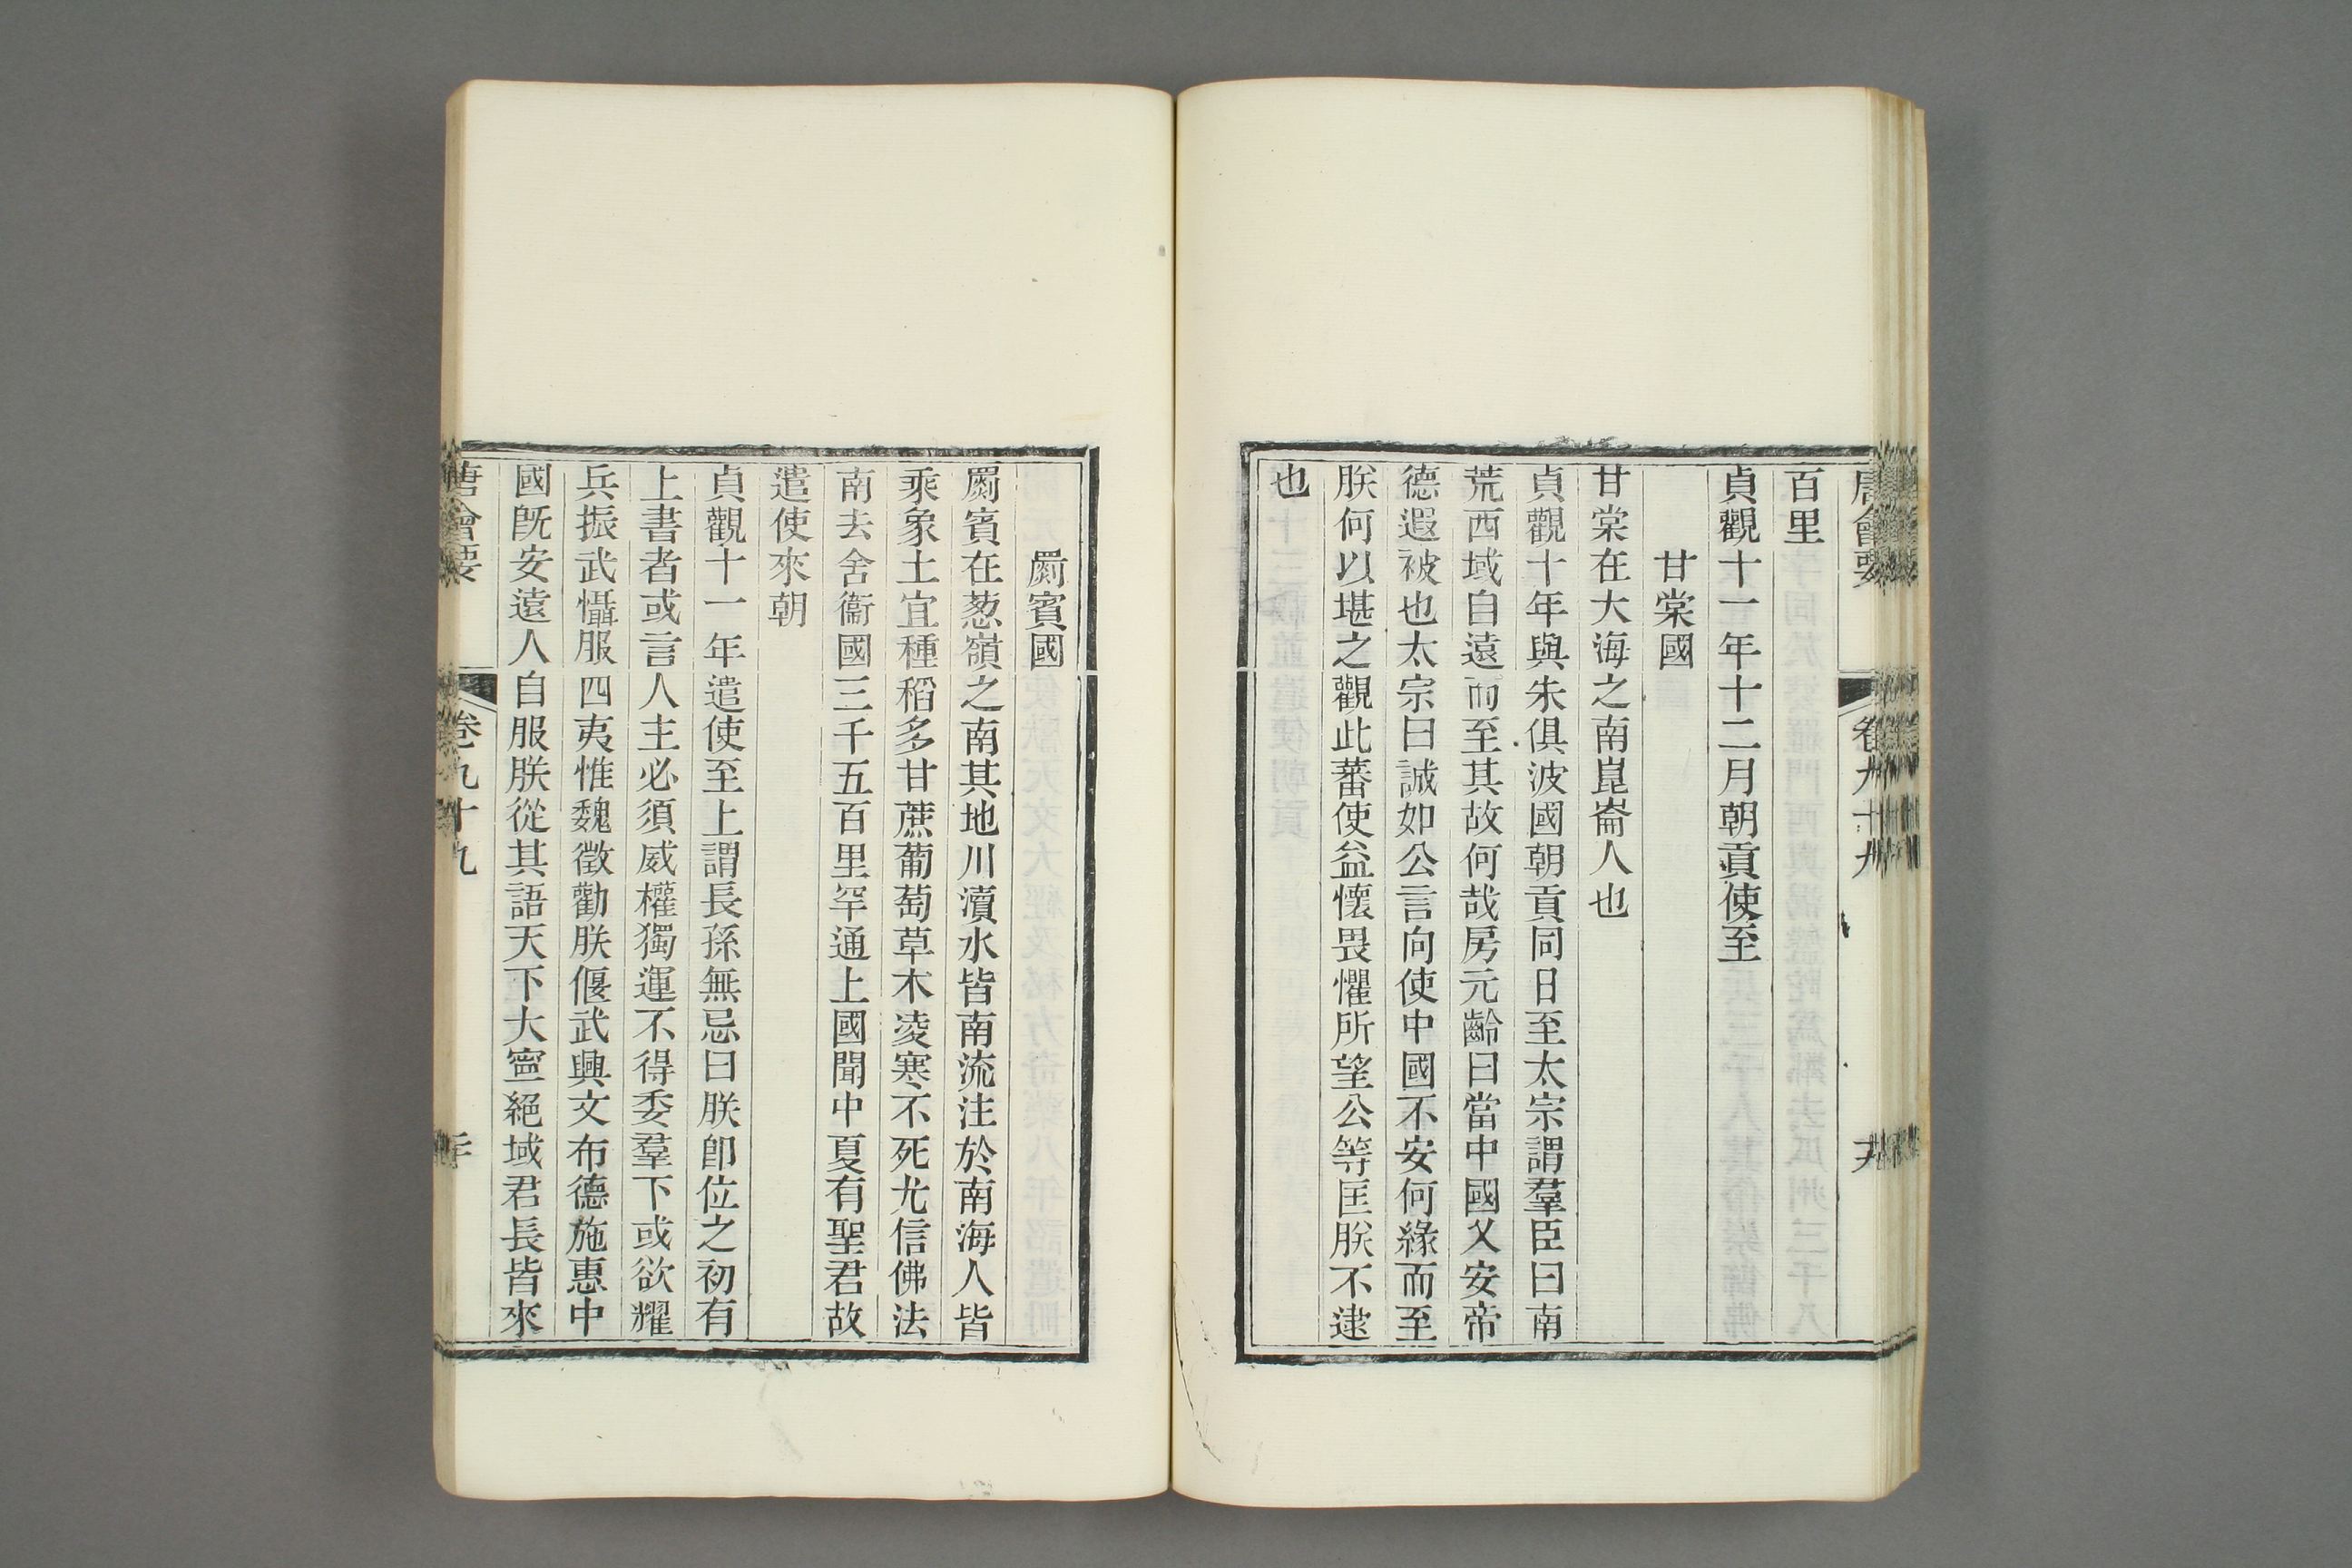 唐會要 卷九十九
百里
貞觀十一年十二月朝貢使至
甘棠國
甘棠在大海之南崑崙人也
貞觀十年與朱俱波國朝貢同日至太宗謂羣臣曰南
荒西域自遠而至其故何哉房元齡曰當中國乂安帝
德遐被也太宗曰誠如公言向使中國不安何緣而至
朕何以堪之觀此蕃使益懷畏懼所望公等匡朕不逮
也
罽賓國
罽賓在葱嶺之南其地川瀆水皆南流注於南海人皆
乘象土宜種稻多甘蔗葡萄草木凌寒不死尤信佛法
南去舍衞國三千五百里罕通上國聞中夏有聖君故
遣使來朝
貞觀十一年遣使至上謂長孫無忌曰朕卽位之初有
上書者或言人主必須威權獨運不得委羣下或欲耀
兵振武懾服四夷惟魏徵勸朕偃武興文布德施惠中
國旣安遠人自服朕從其語天下大寍絕域君長皆來
唐會要 卷九十九